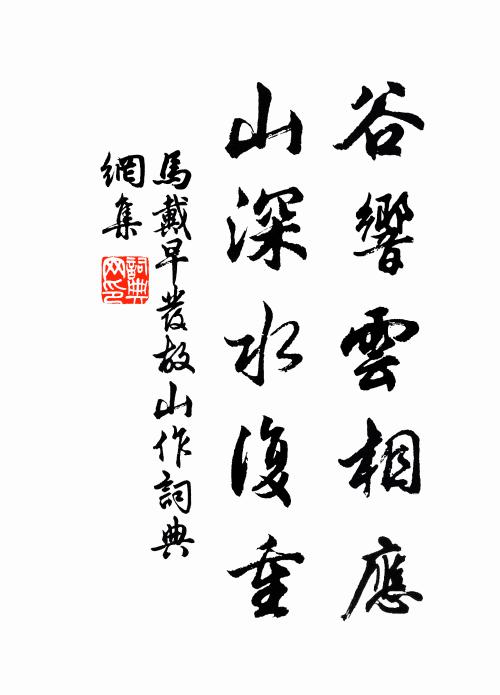 谷響雲相應
山深水復重
馬戴早發故山作詞典
網集
詞典
網印